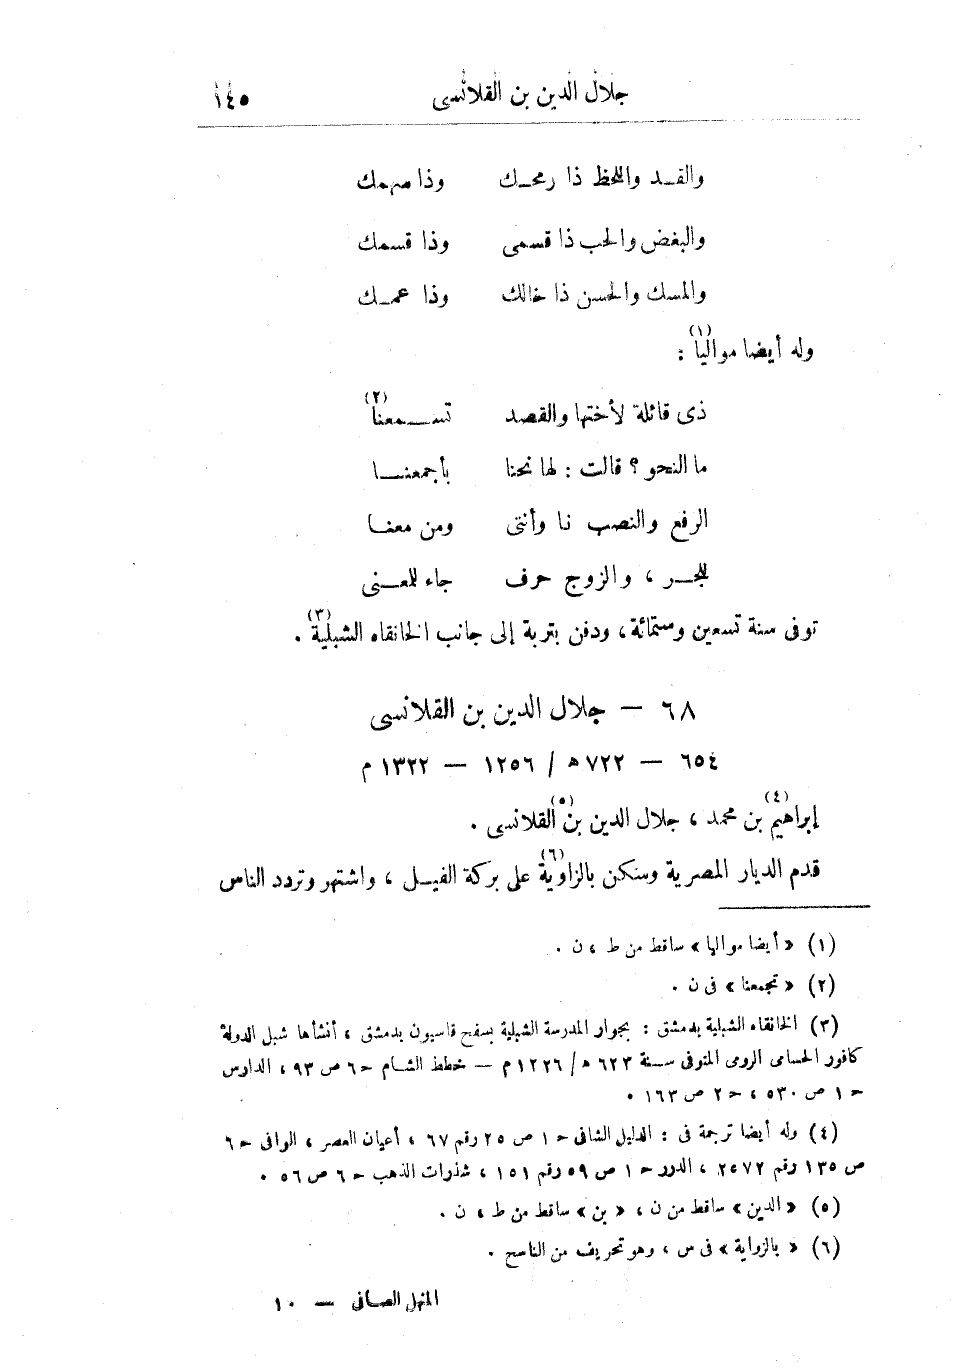 جلال الدين بن القلانسى ١٤٥
والقـد واللحظ ذا رمحـك وذا سهمك
والبغض والحب ذا قسمى وذا قسمك
والمسك والحسن ذا خالك وذا عمـك
وله أيضا مواليا(١) :
ذى قائلة لأختها والقصد تسـمعنا(٢)
ما النحو ؟ قالت : لها نحنا بأجمعنـا
الرفع والنصب نا وأنتى ومن معنـا
للجـر ، والزوج حرف جاء للمعـنى
توفى سنة تسعين وستمائة ، ودفن بتربة إلى جانب الخانقاه الشبلية(٣) .
٦٨ — جلال الدين بن القلانسى
٦٥٤ — ٧٢٢ ه / ١٢٥٦ — ١٣٢٢ م
إبراهيم(٤) بن محمد ، جلال الدين بن(٥) القلانسى .
قدم الديار المصرية وسكن بالزاوية(٦) على بركة الفيـل ، واشتهر وتردد الناس
(١) « أيضا مواليا » ساقط من ط ، ن .
(٢) « تجمعنا » فى ن .
(٣) الخانقاه الشبلية بدمشق : بجوار المدرسة الشبلية بسفح قاسيون بدمشق ، أنشأها شبل الدولة
كافور الحسامى الرومى المتوفى سـنة ٦٢٣ ه / ١٢٢٦ م — خطط الشـام ح ٦ ص ٩٣ ، الدارس
ح ١ ص ٥٣٠ ، ح ٢ ص ١٦٣ .
(٤) وله أيضا ترجمة فى : الدليل الشافى ح ١ ص ٢٥ رقم ٦٧ ، أعيان العصر ، الوافى ح ٦
ص ١٣٥ رقم ٢٥٧٢ ، الدرر ح ١ ص ٥٩ رقم ١٥١ ، شذرات الذهب ح ٦ ص ٥٦ .
(٥) « الدين » ساقط من ن ، « بن » ساقط من ط ، ن .
(٦) « بالزواية » فى س ، وهو تحريف من الناسخ .
المنهل الصـافى — ١٠